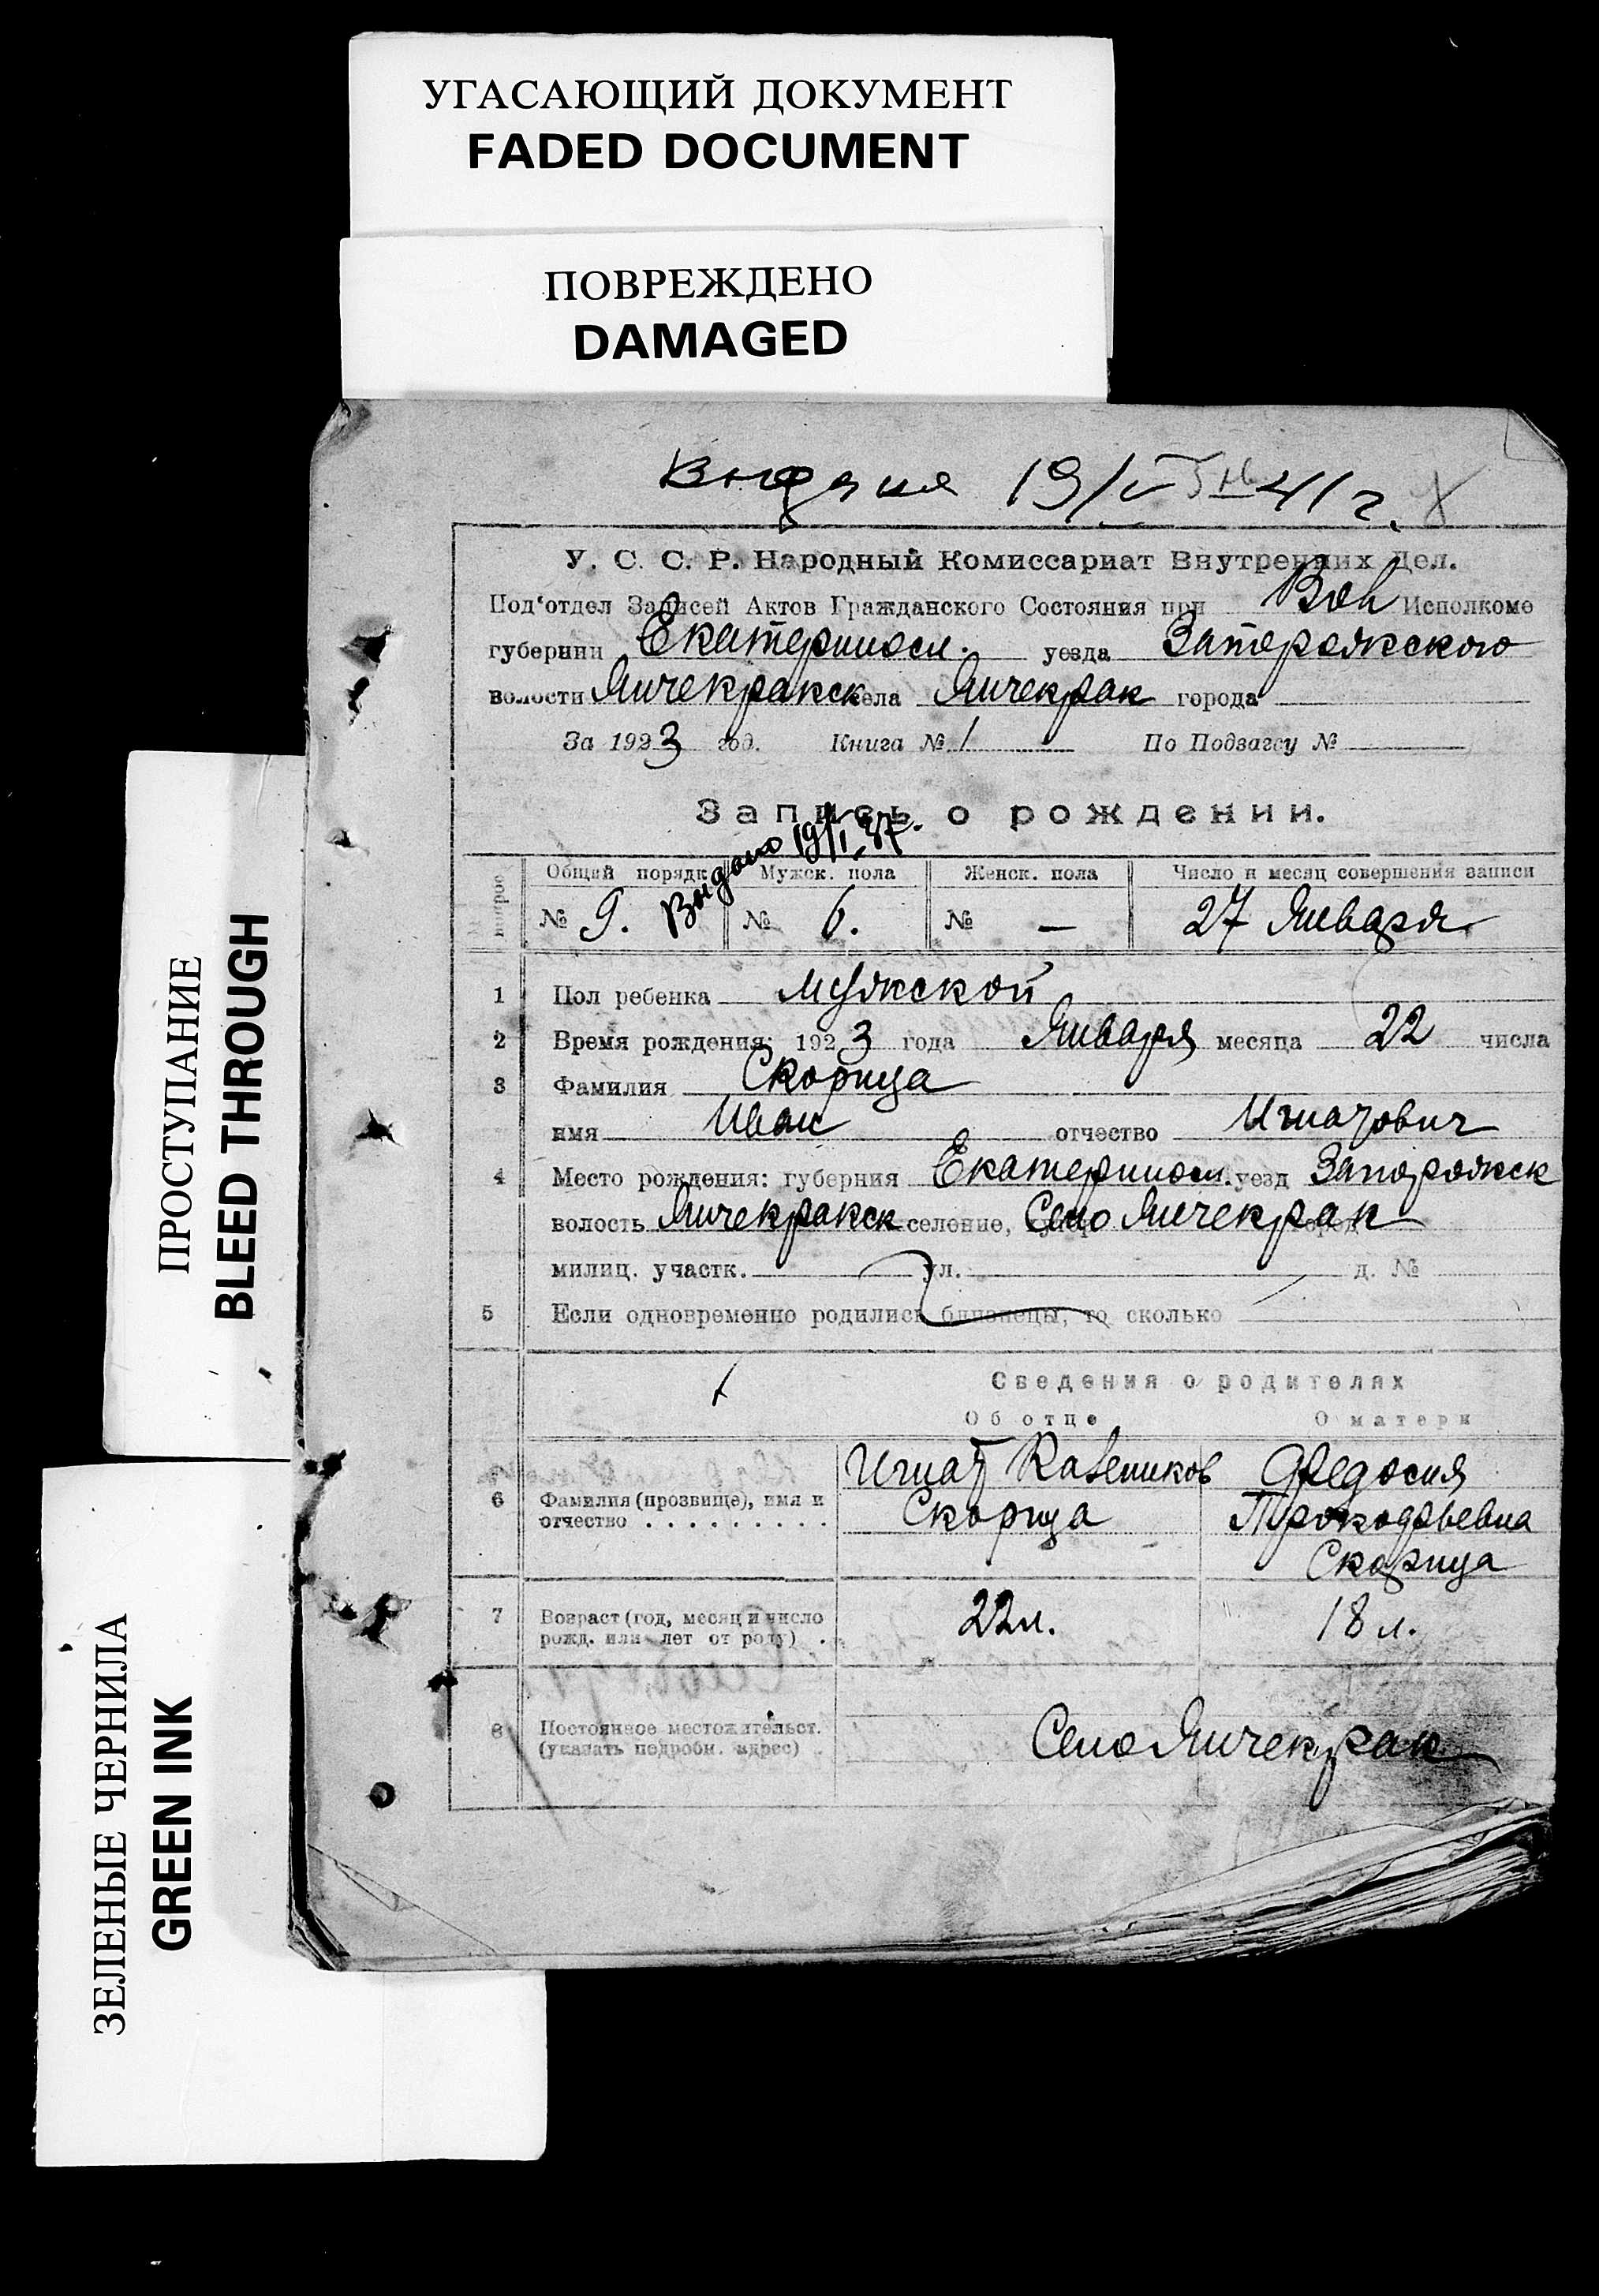 УГАСАЮЩИЙ ДОКУМЕНТ
FADED DOCUMENT
ПОВРЕЖДЕНО
DAMAGED
ПРОСТУПАНИЕ
BLEED THROUGH
ЗЕЛЕНЫЕ ЧЕРНИЛА
GREEN INK
19/V 41 г.
У. С. С. Р. Народный Комиссариат Внутренних Дел.
Под'отдел Записей Актов Гражданского Состояния при Вол Исполкоме
губернии Екатериносл. уезда Запорожского
волости Янчекракск села Янчекрак города
За 1923 год. Книга № 1 По Подзагсу №
Запись о рождении.
Выдано 19/I 37.
№ вопрос Общий порядк Мужск. пола Женск. пола Число и месяц совершения записи
№ 9. № 6. № — 27 Января
1 Пол ребенка мужской
2 Время рождения: 1923 года Января месяца 22 числа
3 Фамилия Скорица
имя Иван отчество Игнатович
4 Место рождения: губерния Екатериносл. уезд Запорожск
волость Янчекракск селение, Село Янчекрак
милиц. участк. ул. д. №
5 Если одновременно родились близнецы, то сколько
Сведения о родителях
Об отце О матери
Игнат Федосия
6 Фамилия (прозвище), имя и отчество Скорица Прокофьевна
Скорица
7 Возраст (год, месяц и число рожд. или лет от роду) 22 л. 18 л.
8 Постоянное местожительст. (указать подробн. адрес) Село Янчекрак